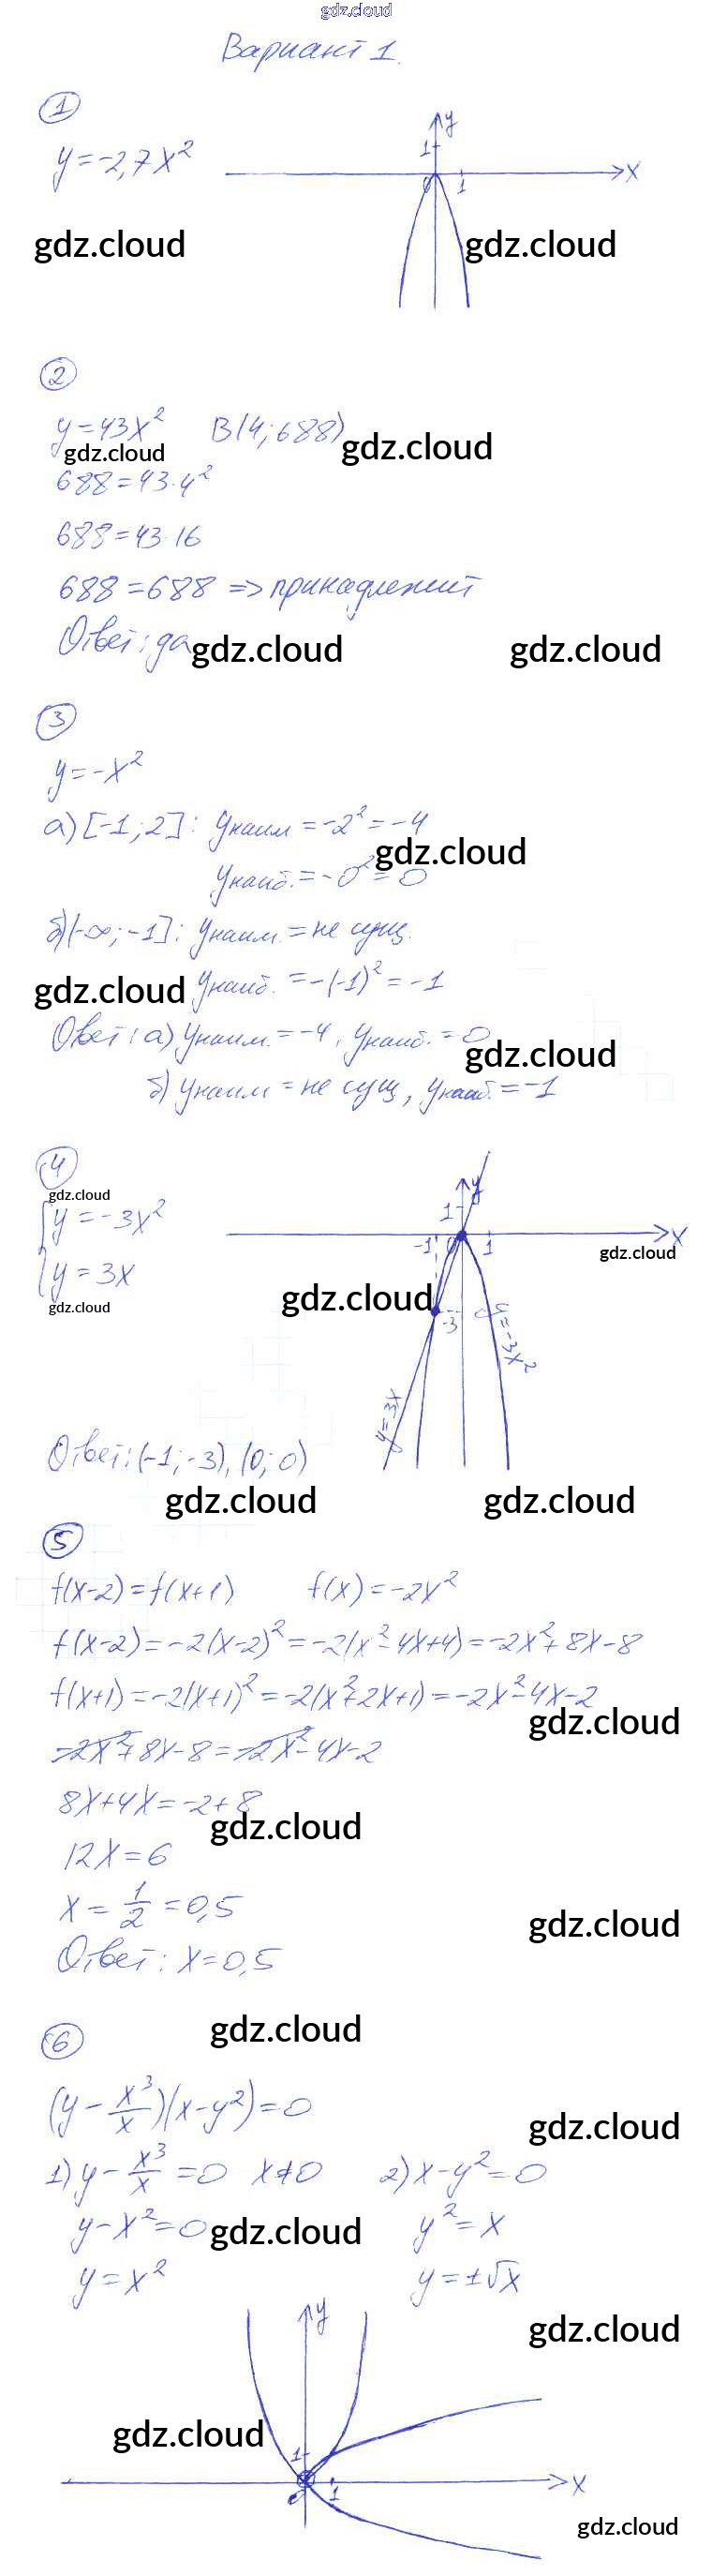 gdz.cloud
Вариант 1.
1
y = -2,7x²
y
1
0
1
x
gdz.cloud gdz.cloud
2
y = 43x² B(4; 688)
gdz.cloud gdz.cloud
688 = 43·4²
688 = 43·16
688 = 688 => принадлежит
Ответ: да
gdz.cloud gdz.cloud
3
y = -x²
а) [-1; 2]: yнаим = -2² = -4
gdz.cloud
yнаиб. = -0² = 0
б) (-∞; -1]: yнаим. = не сущ.
gdz.cloud yнаиб. = -(-1)² = -1
Ответ: а) yнаим. = -4, yнаиб. = 0
gdz.cloud
б) yнаим = не сущ, yнаиб. = -1
4
gdz.cloud
y = -3x²
y = 3x
gdz.cloud
y
1
-1 0 1
x
gdz.cloud
gdz.cloud
-3
y = -3x²
y = 3x
Ответ: (-1; -3), (0; 0)
gdz.cloud gdz.cloud
5
f(x-2) = f(x+1) f(x) = -2x²
f(x-2) = -2(x-2)² = -2(x²-4x+4) = -2x²+8x-8
f(x+1) = -2(x+1)² = -2(x²+2x+1) = -2x²-4x-2
gdz.cloud
-2x²+8x-8 = -2x²-4x-2
8x+4x = -2+8
gdz.cloud
12x = 6
x = 1/2 = 0,5
gdz.cloud
Ответ: x = 0,5
gdz.cloud
6
(y - x³/x)(x-y²) = 0
gdz.cloud
1) y - x³/x = 0 x≠0 2) x-y² = 0
y-x² = 0 gdz.cloud y² = x
y = x² y = ±√x
gdz.cloud
y
gdz.cloud
1
0
1
x
gdz.cloud